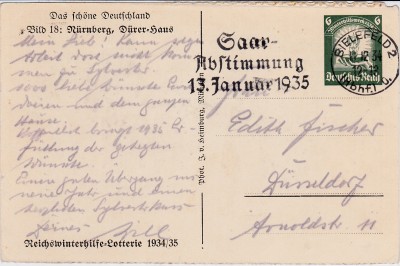 Das schöne Deutschland
Bild 18: Nürnberg, Dürer-Haus
Mein Lieb! Kann wegen
Arbeit dort nicht kom
men zu Sylvester.
1000 liebe Wünsche
Dir und dem ganzen
Hause.
Hoffentlich bringt 1935 Er-
füllung der gehegten
Wünsche.
Einen guten Übergang ins
neue Jahr und einen
herzlichen Sylvesterkuss
Deines
Reichswinterhilfe-Lotterie 1934/35
Phot. J. v. Heimburg,
Saar-
Abstimmung
13. Januar 1935
BIELEFELD 2
12.34
6
6
Deutsches Reich
Edith Fischer
Düsseldorf
Arnoldstr. 11